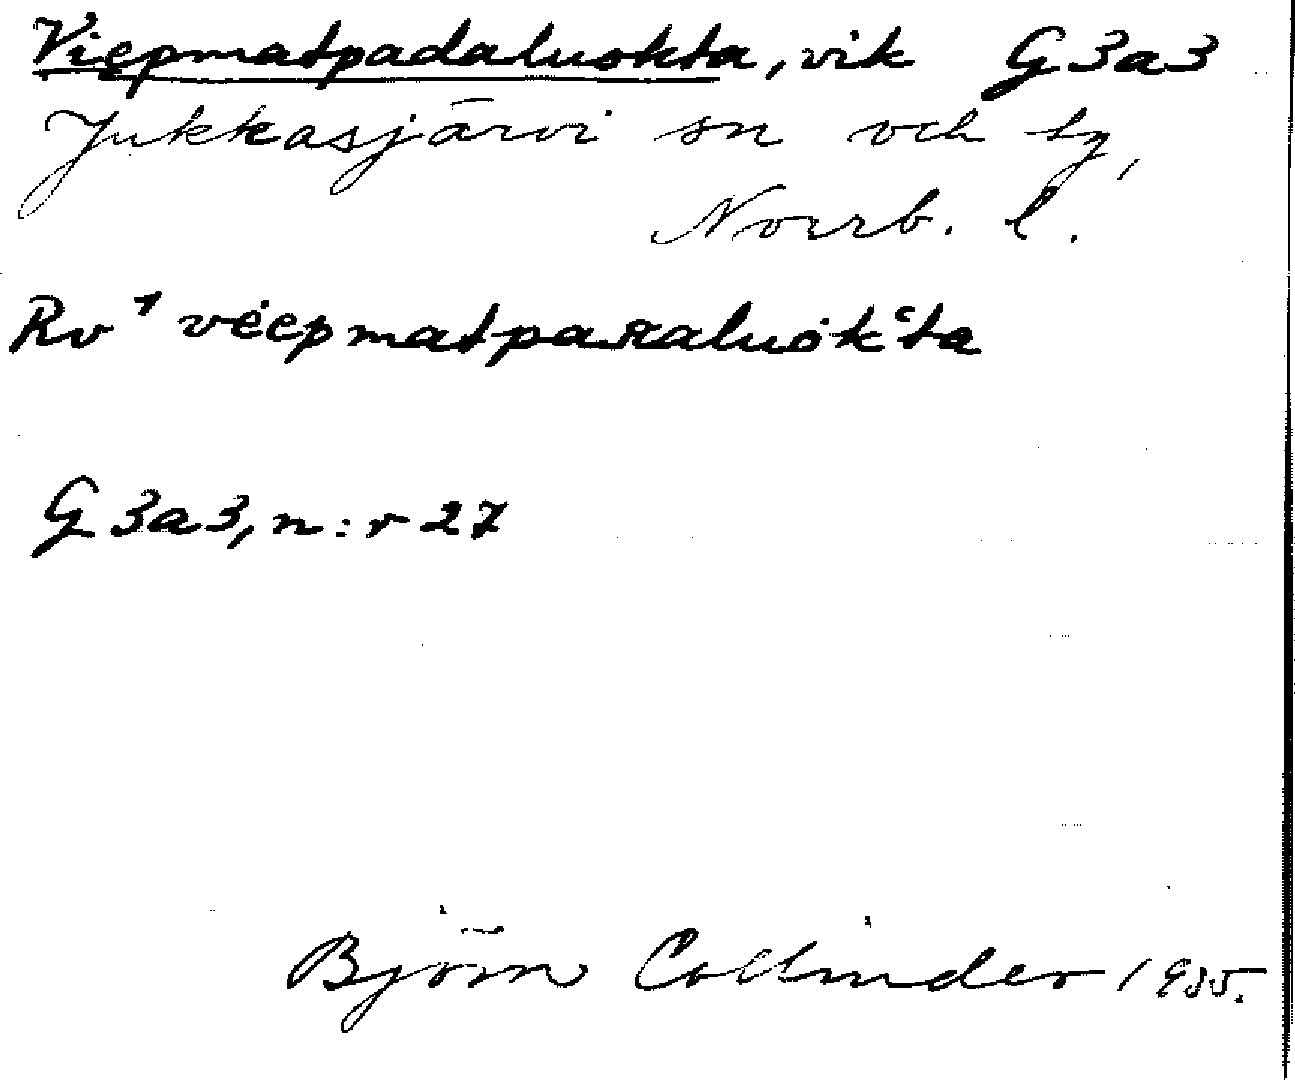 Viepmatpadaluokta, vik G3a3
Jukkasjärvi sn och tg,
Norrb. l.
Rv¹ vėepmatpaRaluȯk'ta
G3a3, n:r 27
Björn Collinder 1935.